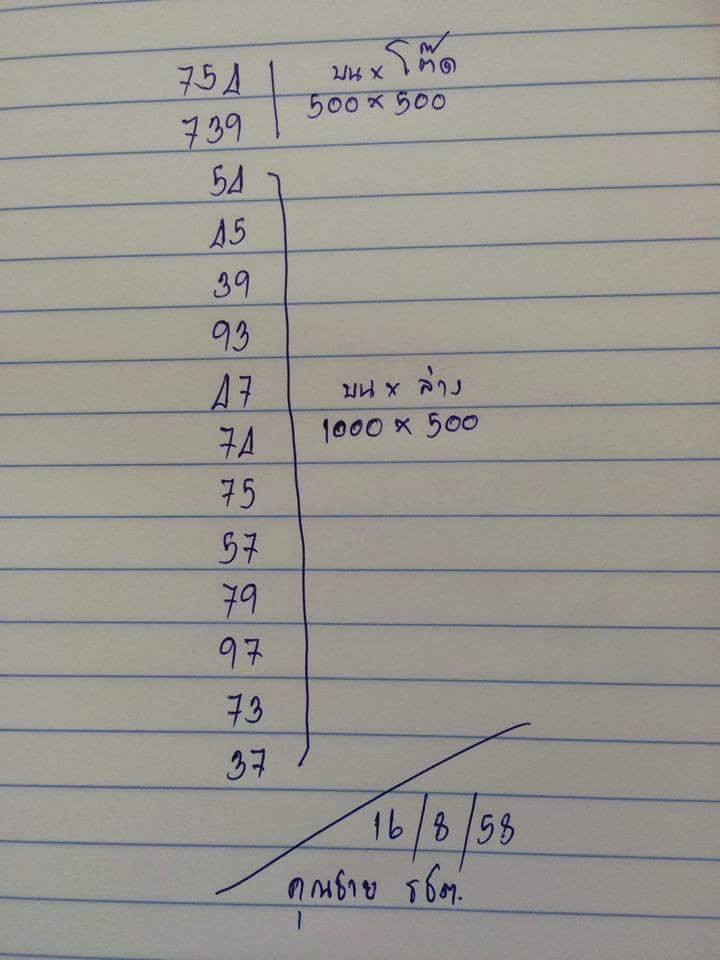 754 บน x โต๊ด
739 500 x 500
54
45
39
93
47 บน x ล่าง
74 1000 x 500
75
57
79
97
73
37
16/8/58
คุณชาย รชต.